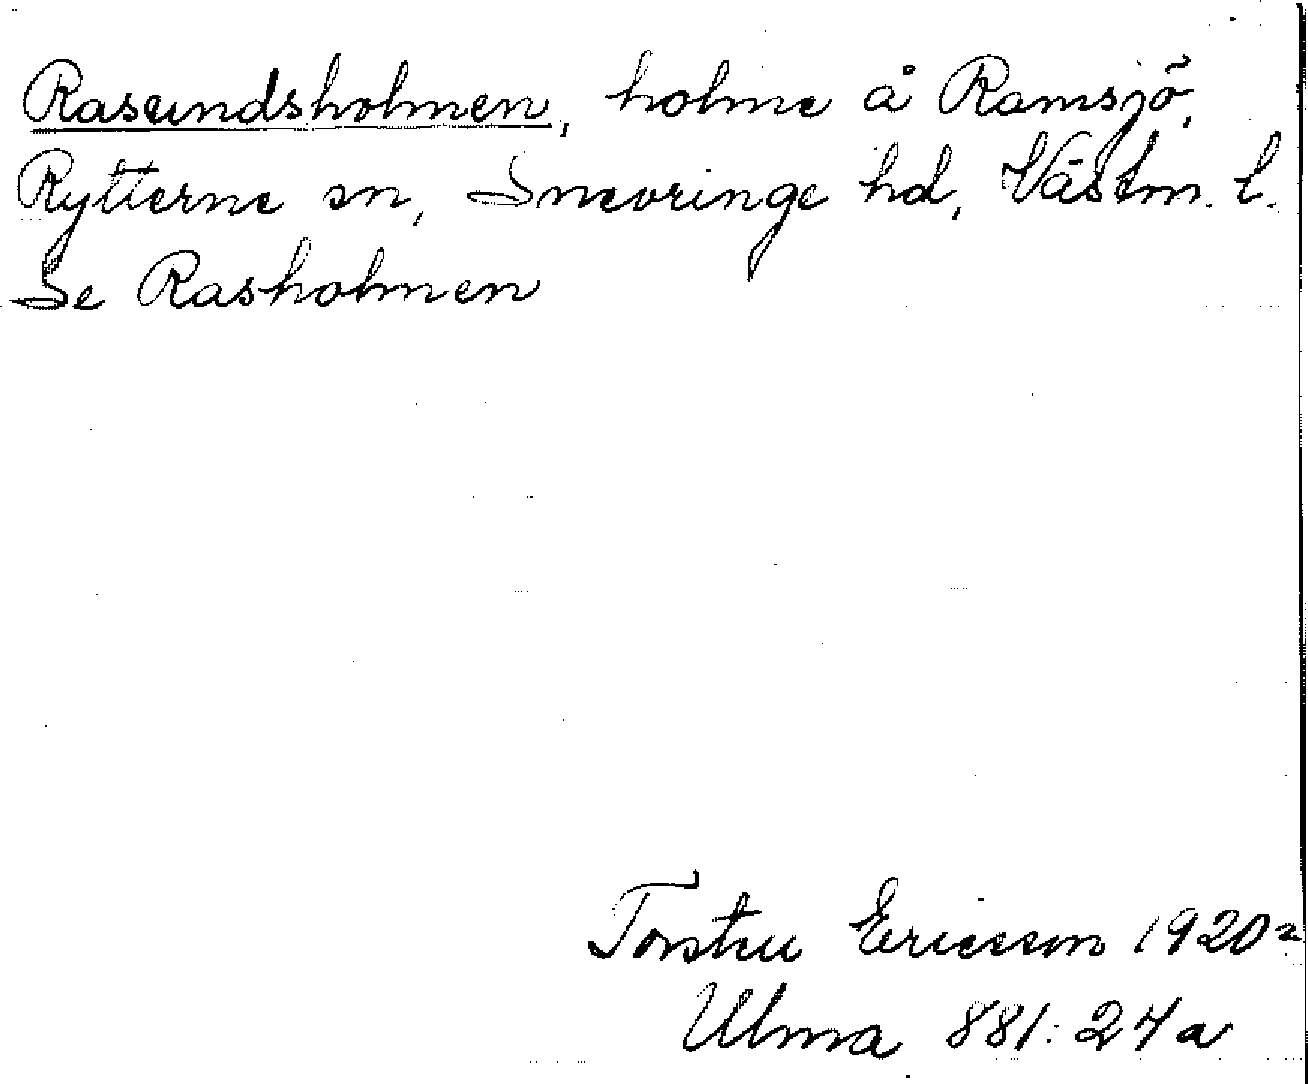 Rasundsholmen, holme å Ramsjö,
Rytterne sn, Snevringe hd, Västm. l.
Se Rasholmen
Torsten Ericsson 1920
Ulma 881:24a